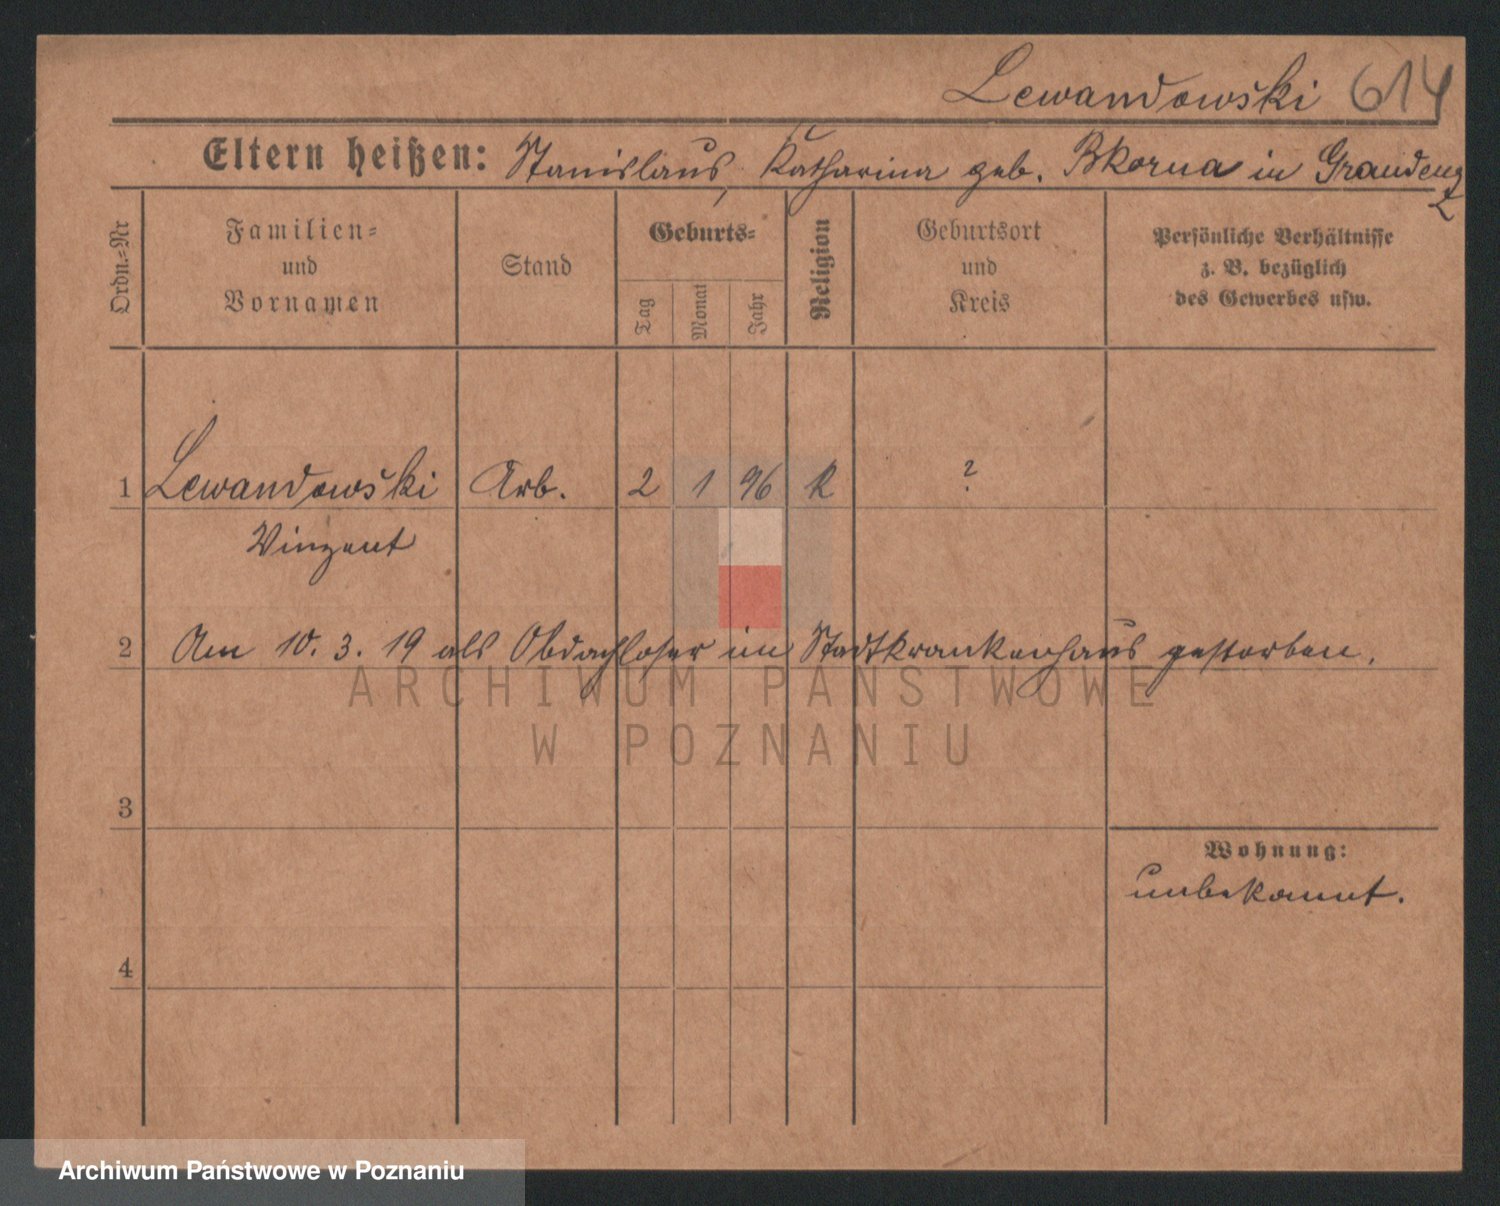 Lewandowski 614
Eltern heißen: Stanislaus, Katharina geb. in Graudenz
Ordn.-Nr
Familien-
und
Vornamen
Stand
Geburts-
Tag
Monat
Jahr
Religion
Geburtsort
und
Kreis
Persönliche Verhältnisse
z. B. bezüglich
des Gewerbes usw.
1 Lewandowski Arb. 2 1 96 K ?
Vinzent
2 Am 10. 3. 19 als Obdachloser im Stadtkrankenhaus gestorben.
ARCHIWUM PAŃSTWOWE
W POZNANIU
3
Wohnung:
unbekannt.
4
Archiwum Państwowe w Poznaniu